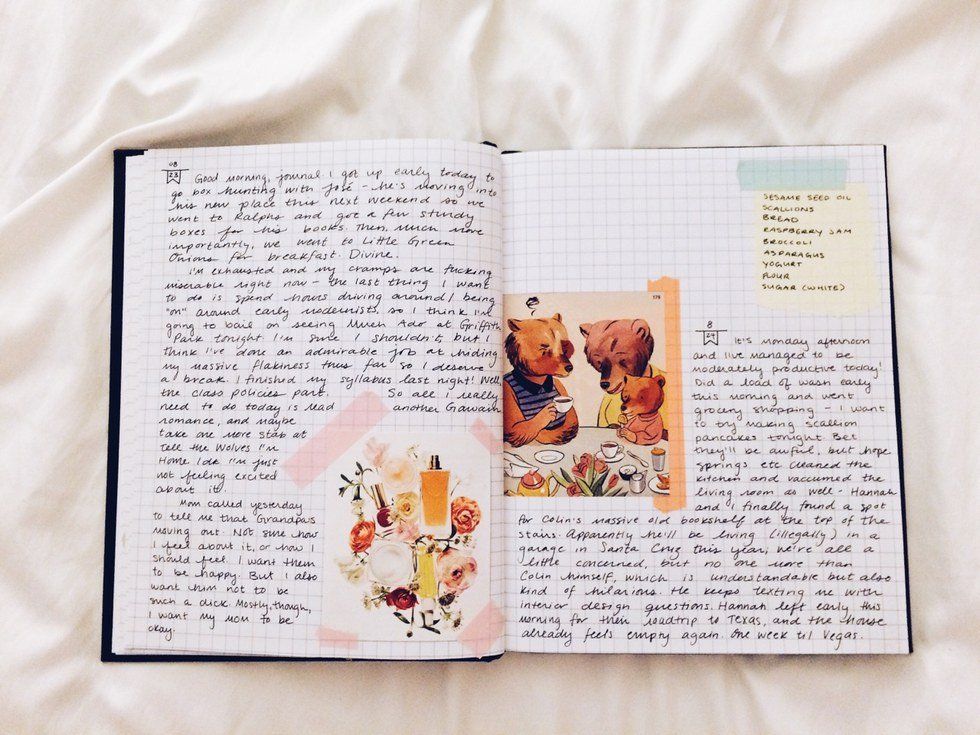 08
23
Good morning, journal! I got up early today to
go box hunting with José - he's moving into
his new place this next weekend so we
went to Ralphs and got a few sturdy
boxes for his books. Then, much more
importantly, we went to Little Green
Onions for breakfast. Divine.
I'm exhausted and my cramps are fucking
miserable right now - the last thing I want
to do is spend hours driving around/being
"on" around early modernists, so I think I'm
going to bail on seeing Much Ado at Griffith
Park tonight. I'm sure I shouldn't but I
think I've done an admirable job at hiding
my massive flakiness thus far so I deserve
a break. I finished my syllabus last night! Well,
the class policies part. So all I really
need to do today is read another Gawain
romance, and maybe
take one more stab at
Tell the Wolves I'm
Home. Idk I'm just
not feeling excited
about it.
Mom called yesterday
to tell me that Grandpa's
moving out. Not sure how
I feel about it, or how I
should feel. I want them
to be happy. But I also
want him not to be
such a dick. Mostly, though,
I want my mom to be
okay.
SESAME SEED OIL
SCALLIONS
BREAD
RASPBERRY JAM
BROCCOLI
ASPARAGUS
YOGURT
FLOUR
SUGAR (WHITE)
179
8
24
It's Monday afternoon
and I've managed to be
moderately productive today!
Did a load of wash early
this morning and went
grocery shopping - I want
to try making scallion
pancakes tonight. Bet
they'll be awful, but hope
springs etc. Cleaned the
kitchen and vacuumed the
living room as well - Hannah
and I finally found a spot
for Colin's massive old bookshelf at the top of the
stairs. Apparently he'll be living (illegally) in a
garage in Santa Cruz this year, we're all a
little concerned, but no one more than
Colin himself, which is understandable but also
kind of hilarious. He keeps texting me with
interior design questions. Hannah left early this
morning for their roadtrip to Texas, and the house
already feels empty again. One week til Vegas.